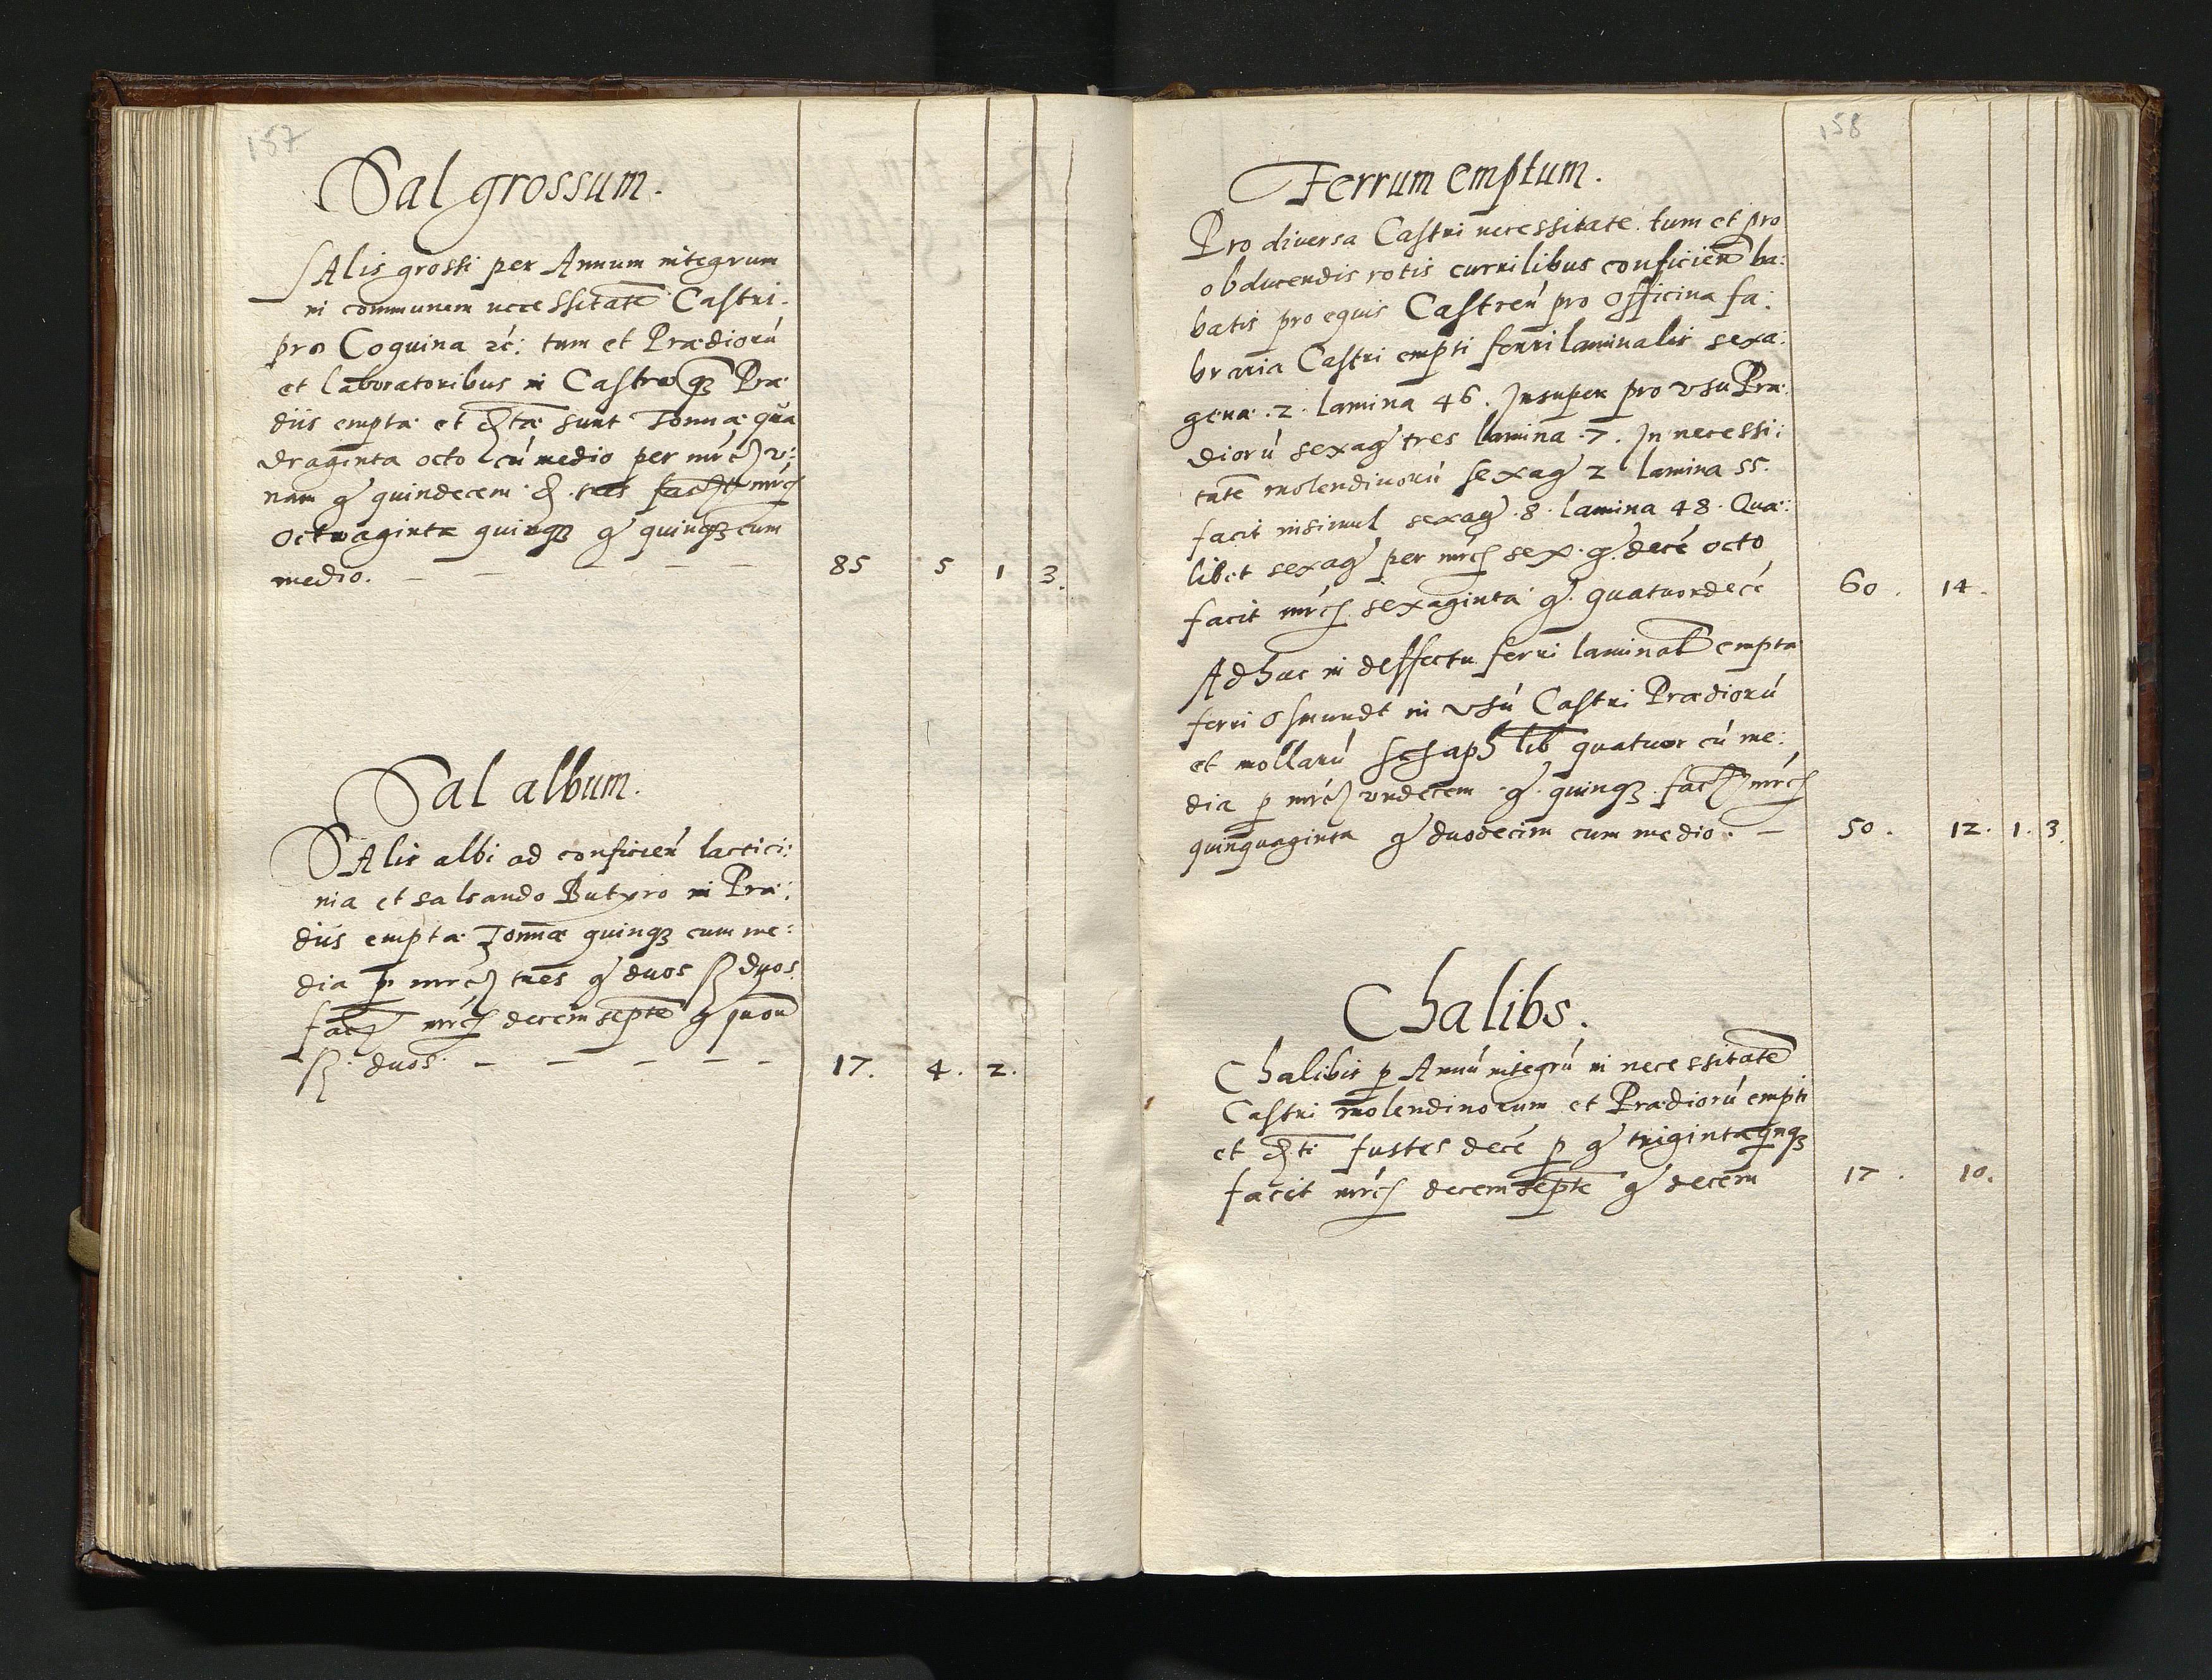 157
Sal grossum.
SAlis grossi per Annum integrum
in communem necessitatē Castri.
pro Coquina ꝛc: tum et Prædiorú
et laboratoribus in Castro qȝ Præ
diis empta et sunt Tonnæ qua
draginta octo cú medio per mrc v:
nam gͦ quindecem tres facit mrc
Octuaginta quinqȝ gͦ quinqȝ cum
medio. — — — — — 85 5 1 3.
Sal album.
SAlis albi ad conficień lactici:
nia et salsando Butyro in Præ:
diis empta Tonnæ quinqȝ cum me:
dia p mrc tres gͦ duos ß duos
facit mrc decem septē gͦ
ß duos — — — — — 17. 4. 2.
158
Ferrum emptum.
Pro diversa Castri necessitate tum et pro
obducendis rotis currilibus conficień ba:
batis pro equis Castreń pro officina fa:
braria Castri empti ferri laminalis sexa:
genæ .2. lamina 46. Insuper pro vsu Præ
diorú sexag tres lamina .7. In necessi:
tatē molendinorú sexag 2 lamina 55.
facit insimul sexag .8. lamina 48. Quæ:
libet sexag per mrc sex gͦ decé octo
facit mrc sexaginta gͦ quatuordecé 60. 14.
Adhuc in deffectu ferri laminal empta
ferri Osmundt in vsú Castri Prædiorú
et mollarú lib quatuor cú me:
dia p mrc vndecem gͦ quinqȝ facit mrc
quinquaginta gͦ duodecim cum medio. — 50. 12. 1. 3.
Chalibs.
Chalibis p Annú integrú in necessitatē
Castri molendinorum et Prædiorú empti
et fustes decē p gͦ triginta qnqȝ
facit mrc decem septē gͦ decem 17. 10.